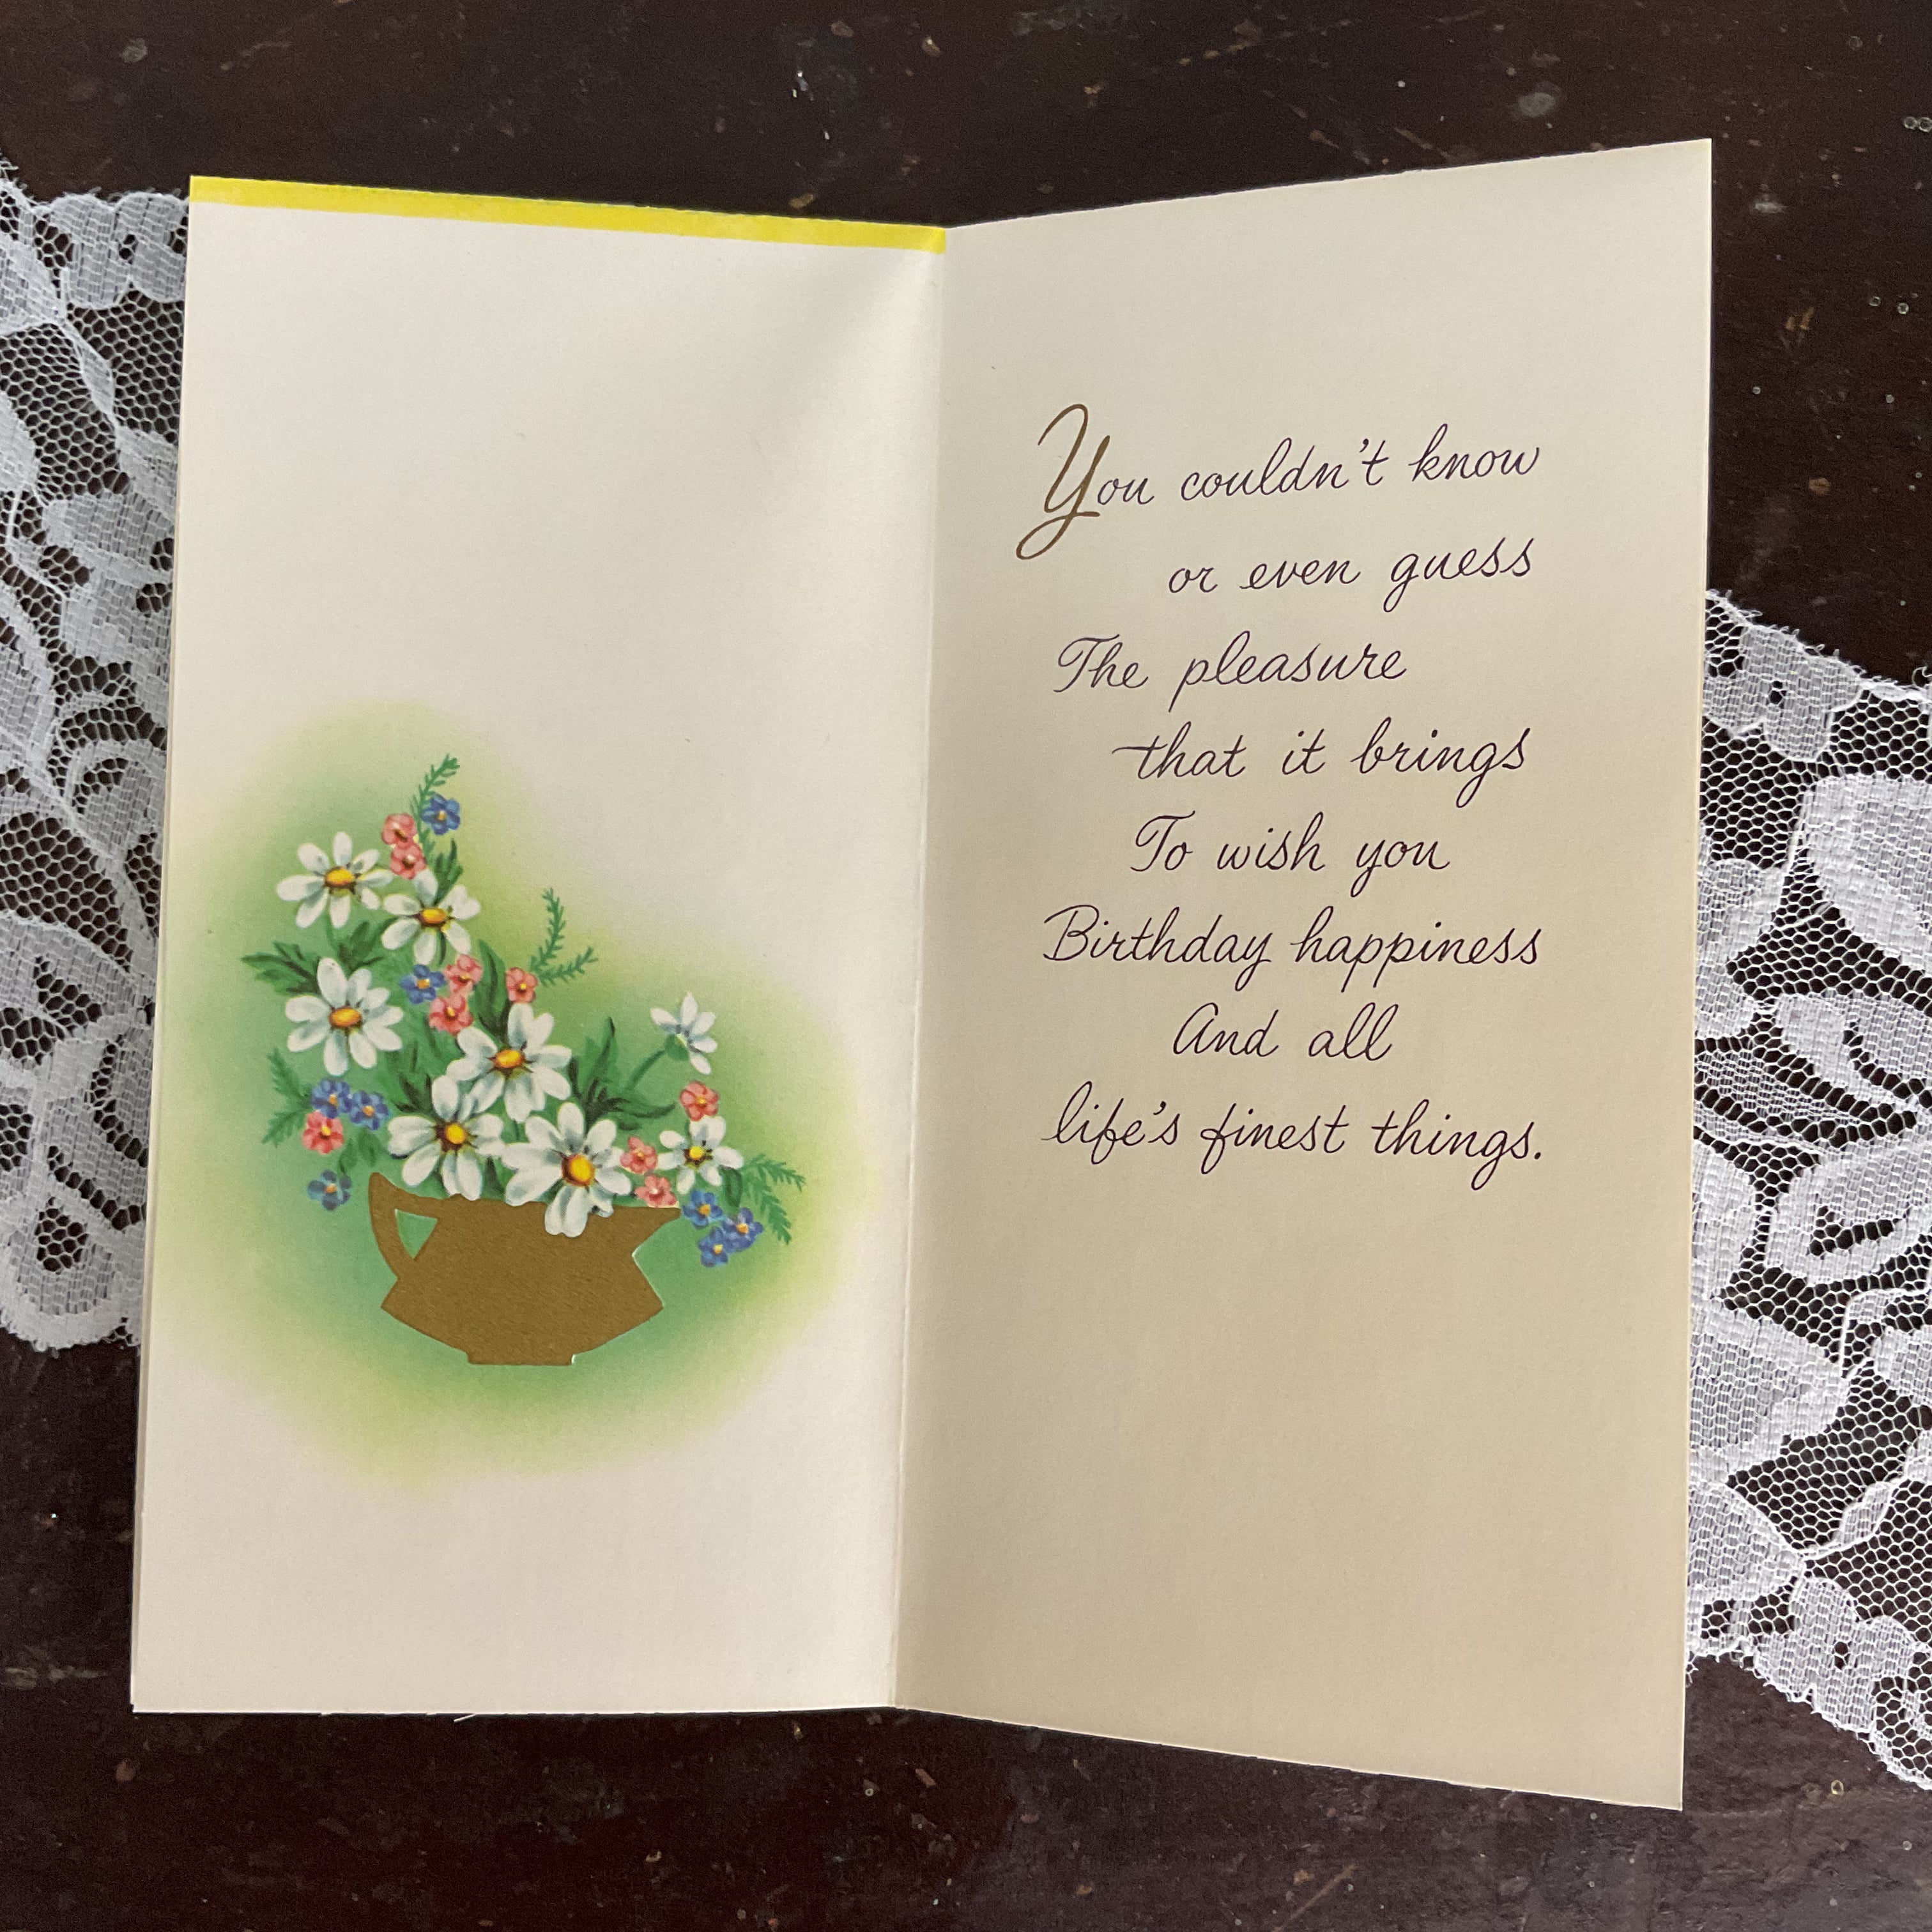 You couldn't know
or even guess
The pleasure
that it brings
To wish you
Birthday happiness
And all
life's finest things.